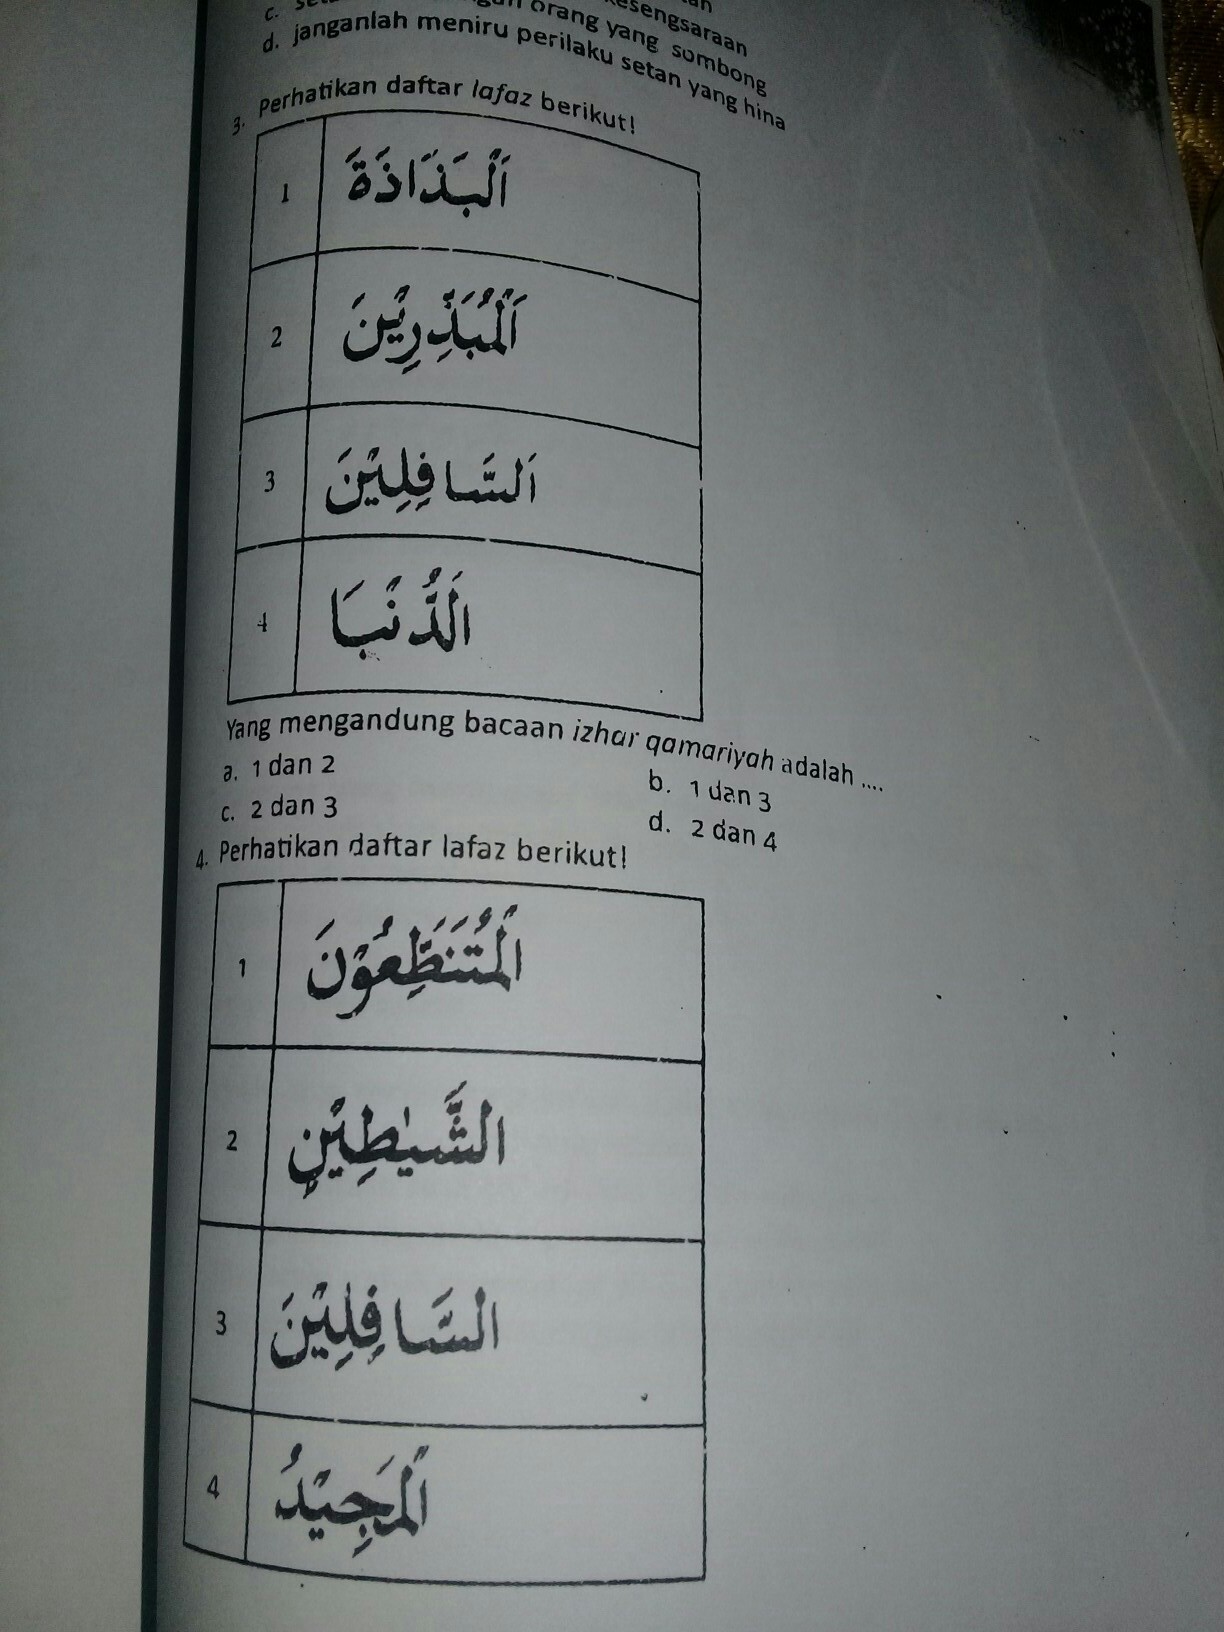 kesengsaraan
orang yang sombong
d. janganlah meniru perilaku setan yang hina
3. Perhatikan daftar lafaz berikut!
1 اَلْبَذَاذَةَ
2 اَلْمُبَذِّرِيْنَ
3 اَلسَّافِلِيْنَ
4 الَدُّنْبَا
Yang mengandung bacaan izhar qamariyah adalah ....
a. 1 dan 2
b. 1 dan 3
c. 2 dan 3
d. 2 dan 4
4. Perhatikan daftar lafaz berikut!
1 الْمُتَنَطِّعُوْنَ
2 الشَّيٰطِيْنِ
3 السَّافِلِيْنَ
4 الْمَجِيْدُ